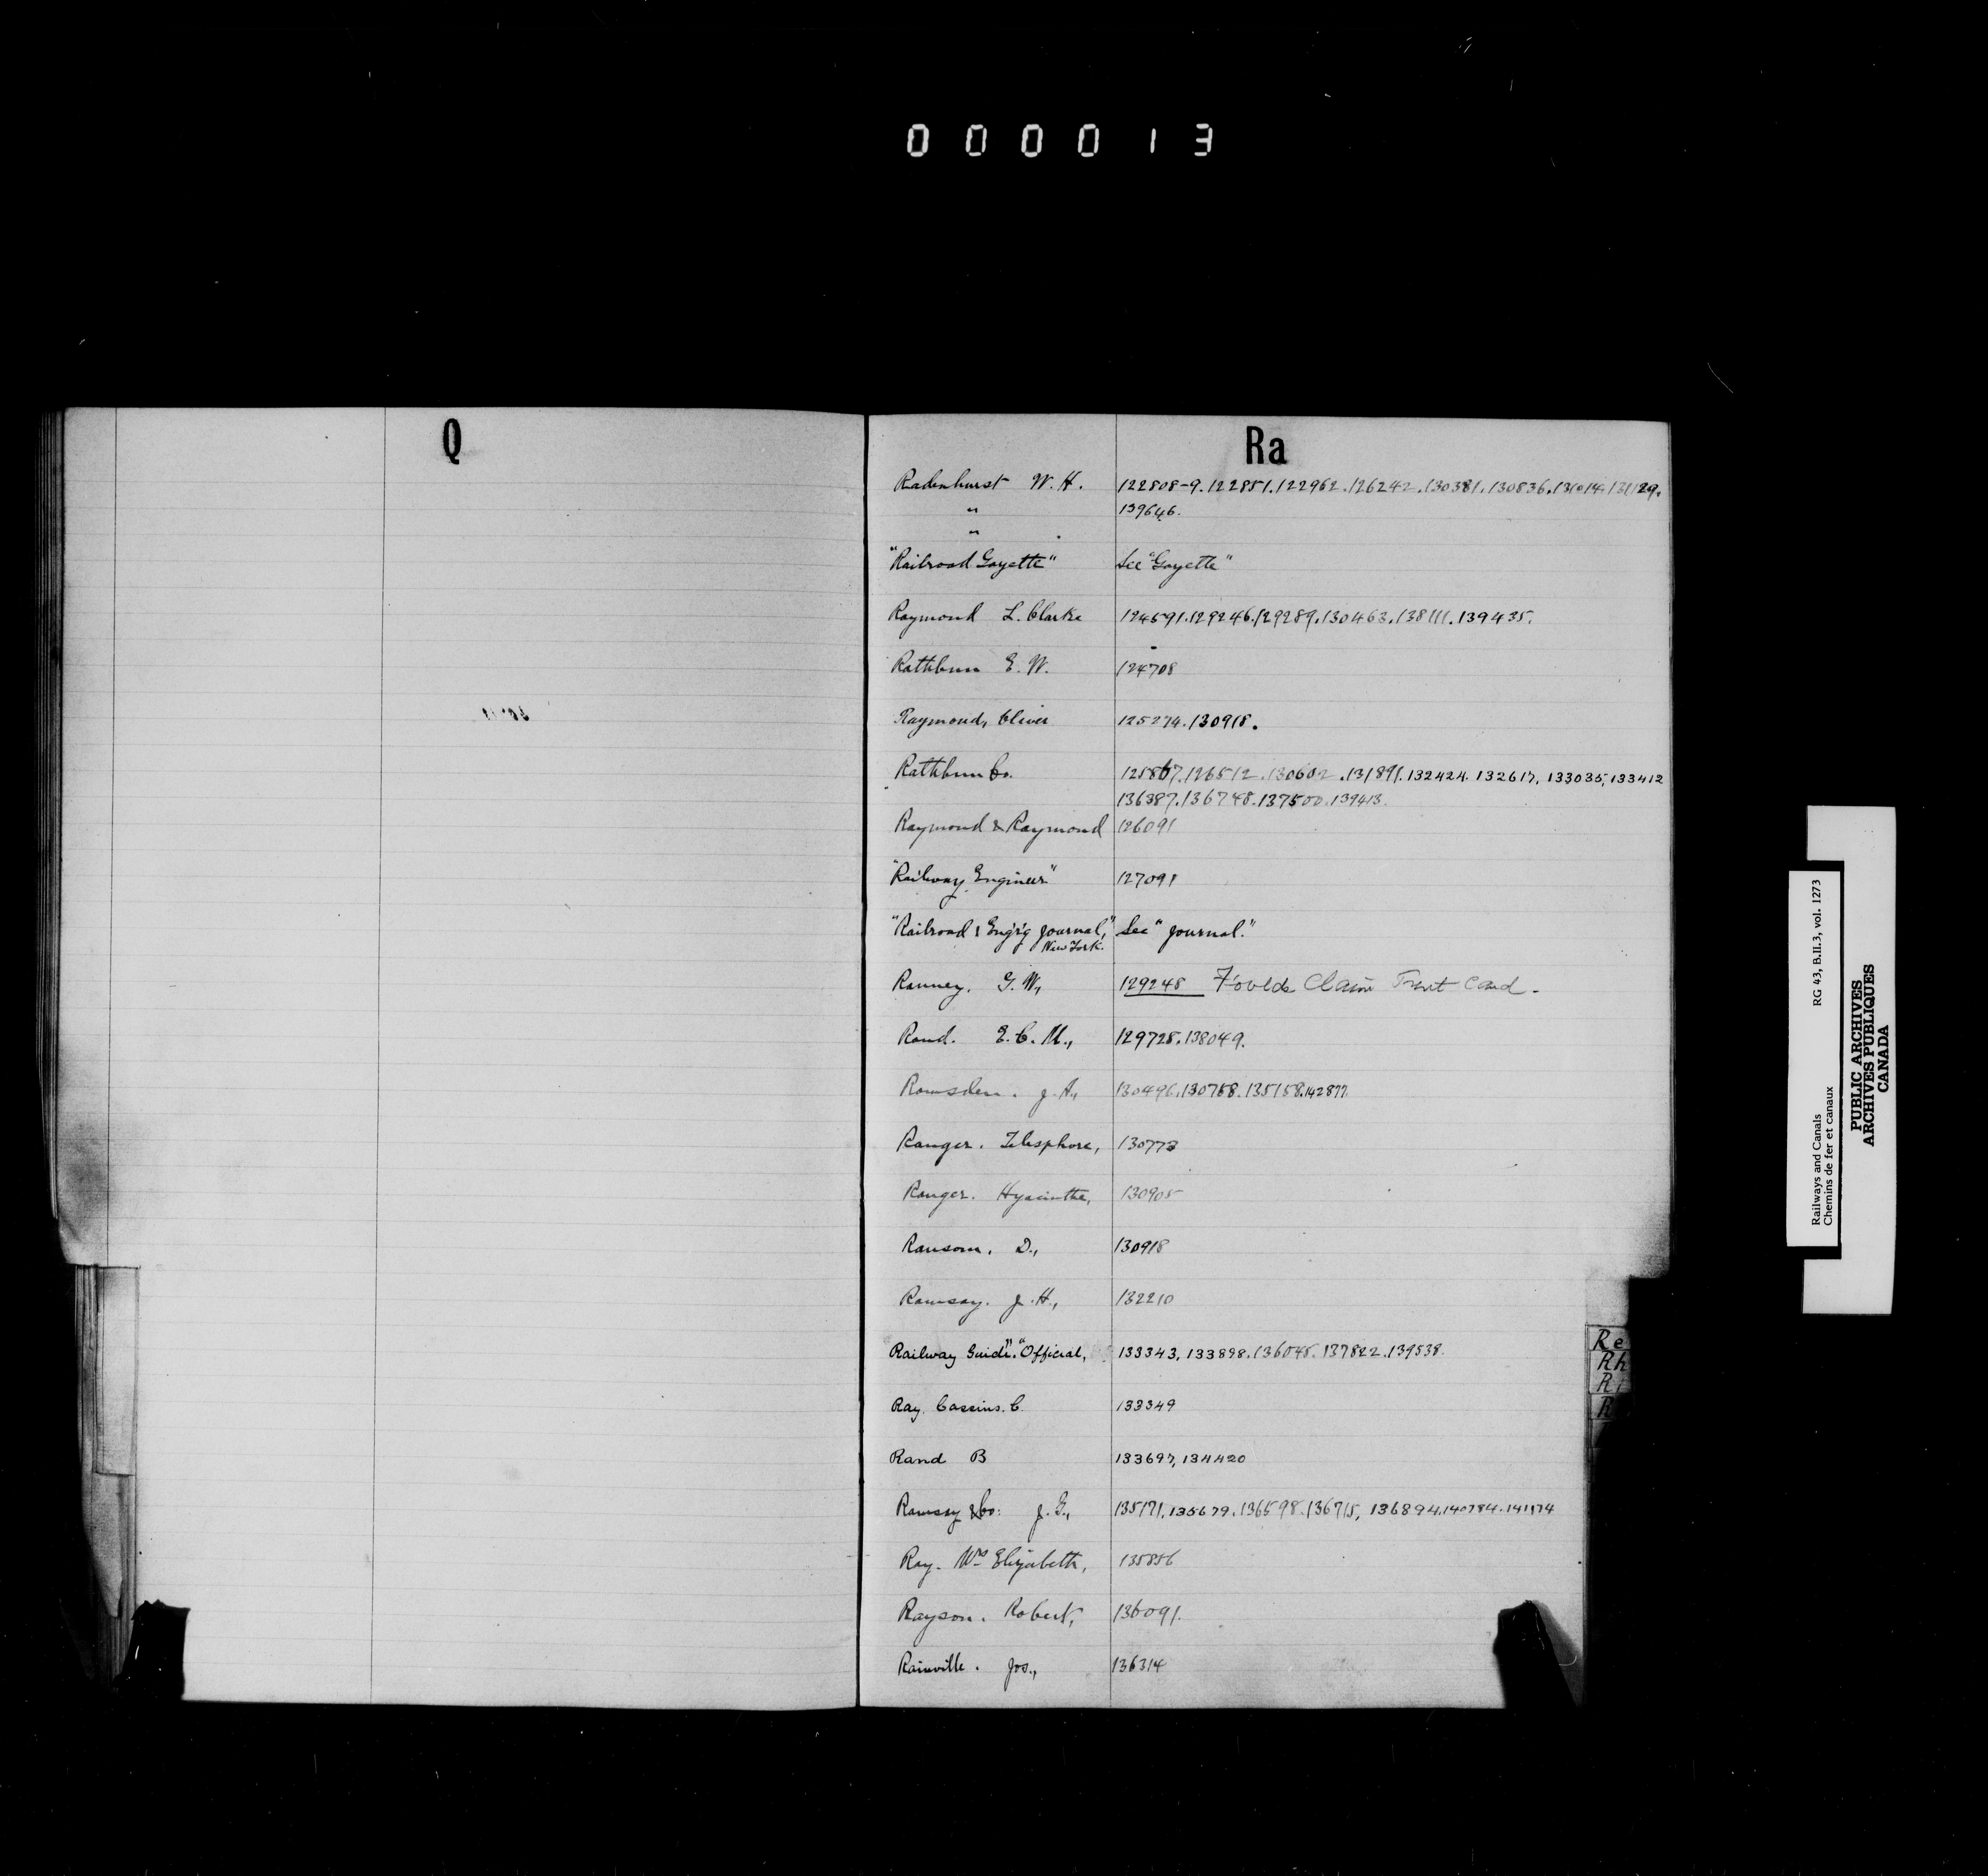 000013
Q
Ra
Radenhurst W. H. 122808-9. 122851. 122962. 126242. 130381. 130836. 131014. 131129.
" 139646.
"
"Railroad Gazette" See "Gazette"
Raymond L. Clarke 124591. 129246. 129289. 130463. 138111. 139435.
Rathbun E. W. 124708
Raymond, Oliver 125274. 130918.
Rathbun Co. 125867. 126512. 130602. 131891. 132424. 132617, 133035, 133412
136387. 136748. 137500. 139413.
Raymond & Raymond 126091
"Railway Engineer" 127091
"Railroad & Eng'r'g Journal," See "Journal."
New York.
Ranney. G. W, 129248 Foulds Claim Trent Canal.
Rand. E. C. M., 129728. 138049.
Ramsden. J. A., 130496. 130768. 135158. 142877.
Ranger. Telesphore, 130773
Ranger. Hyacinthe, 130905
Ransom. D., 130918
Ramsay. J. H., 132210
Railway Guide". "Official, 133343, 133898. 136045. 137822. 139538.
Ray. Cassius. C 133349
Rand B 133697, 134420
Ramsay & Co: J. G., 135171. 135679. 136598. 136715, 136894. 140784. 141174
Ray. Mrs Elizabeth, 135856
Rayson. Robert, 136091.
Rainville. Jos., 136314
Re
Rh
Ri
R
Railways and Canals RG 43, B.II.3, vol. 1273
Chemins de fer et canaux
PUBLIC ARCHIVES
ARCHIVES PUBLIQUES
CANADA